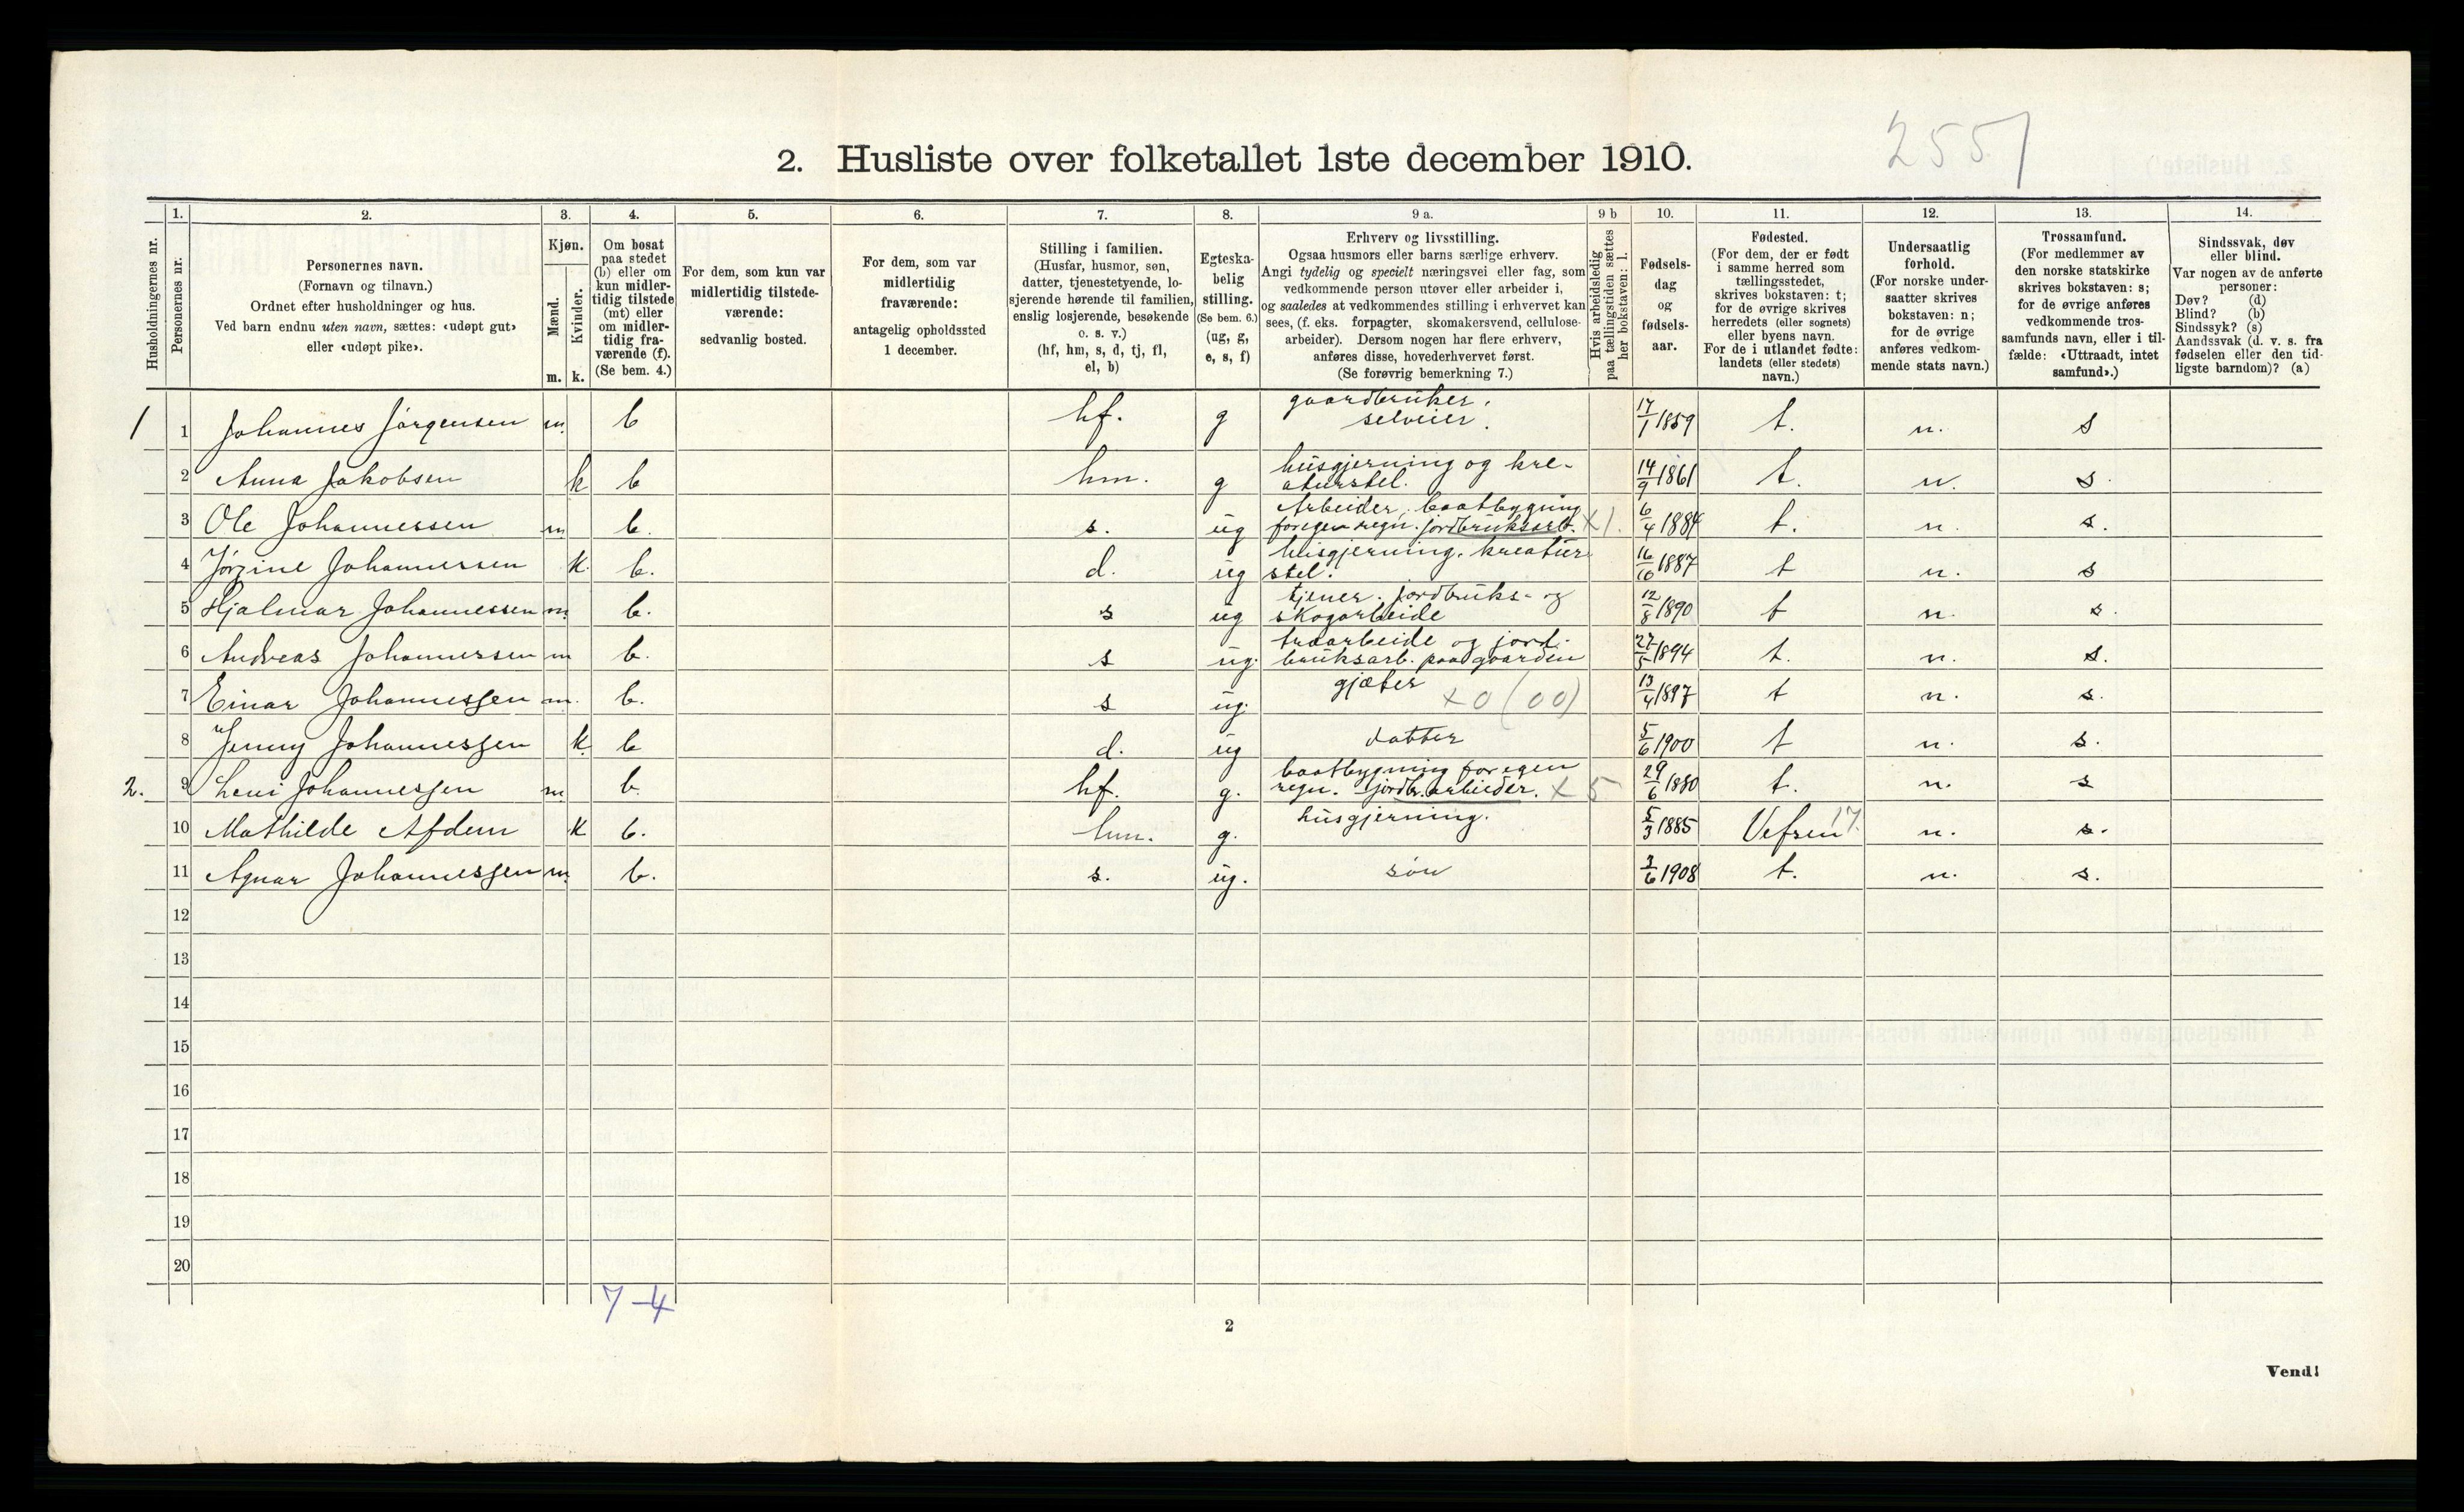 2551
2. Husliste over folketallet 1ste december 1910.
Husholdningernes nr.
1. Personernes nr.
2. Personernes navn.
(Fornavn og tilnavn.)
Ordnet efter husholdninger og hus.
Ved barn endnu uten navn, sættes: «udøpt gut»
eller «udøpt pike».
3. Kjøn.
Mænd. Kvinder.
m. k.
4. Om bosat
paa stedet
(b) eller om
kun midler-
tidig tilstede
(mt) eller
om midler-
tidig fra-
værende (f).
(Se bem. 4.)
5. For dem, som kun var
midlertidig tilstede-
værende:
sedvanlig bosted.
6. For dem, som var
midlertidig
fraværende:
antagelig opholdssted
1 december.
7. Stilling i familien.
(Husfar, husmor, søn,
datter, tjenestetyende, lo-
sjerende hørende til familien,
enslig losjerende, besøkende
o. s. v.)
(hf, hm, s, d, tj, fl,
el, b)
8. Egteska-
belig
stilling.
(Se bem. 6.)
(ug, g,
e, s, f)
9 a. Erhverv og livsstilling.
Ogsaa husmors eller barns særlige erhverv.
Angi tydelig og specielt næringsvei eller fag, som
vedkommende person utøver eller arbeider i,
og saaledes at vedkommendes stilling i erhvervet kan
sees, (f. eks. forpagter, skomakersvend, cellulose-
arbeider). Dersom nogen har flere erhverv,
anføres disse, hovederhvervet først.
(Se forøvrig bemerkning 7.)
9 b Hvis arbeidsledig
paa tællingstiden sættes
her bokstaven: l.
10. Fødsels-
dag
og
fødsels-
aar.
11. Fødested.
(For dem, der er født
i samme herred som
tællingsstedet,
skrives bokstaven: t;
for de øvrige skrives
herredets (eller sognets)
eller byens navn.
For de i utlandet fødte:
landets (eller stedets)
navn.)
12. Undersaatlig
forhold.
(For norske under-
saatter skrives
bokstaven: n;
for de øvrige
anføres vedkom-
mende stats navn.)
13. Trossamfund.
(For medlemmer av
den norske statskirke
skrives bokstaven: s;
for de øvrige anføres
vedkommende tros-
samfunds navn, eller i til-
fælde: «Uttraadt, intet
samfund».)
14. Sindssvak, døv
eller blind.
Var nogen av de anførte
personer:
Døv? (d)
Blind? (b)
Sindssyk? (s)
Aandssvak (d. v. s. fra
fødselen eller den tid-
ligste barndom)? (a)
1 1 Johannes Jørgensen m. b hf. g gaardbruker. selveier. 17/1 1859 t. n. s
2 Anna Jakobsen k b hm. g husgjerning og kre-aturstel. 14/9 1861 t. n. s.
3 Ole Johannessen m b. s. ug Arbeider, baatbygning for egen regn. jordbruksarb. X 1. 6/4 1884 t. n. s.
4 Jørgine Johannessen k. b. d. ug husgjerning. kreatur stel. 16/10 1887 t n. s
5 Hjalmar Johannessen m. b. s ug tjener. jordbruks- og skogarbeide 12/8 1890 t n. s.
6 Andreas Johannessen m b. s ug. træarbeide og jord-bruksarb. paa gaarden 27/5 1894 t. n. s.
7 Einar Johannessen m. b. s ug. gjæter x0 (00) 13/4 1897 t n. s.
8 Jenny Johannessen k. b d. ug datter 5/6 1900 t n. s.
2. 9 Leni Johannessen m b. hf. g. baatbygning for egen regn. jordbr.arbeider. x 5 29/6 1880 t. n. s
10 Mathilde k b. hm. g. husgjerning. 5/3 1885 Vefsen 17. n. s.
11 Agnar Johannessen m. b. s. ug. søn 3/6 1908 t. n. s.
12
13
14
15
16
17
18
19
20
7-4
2
Vend!